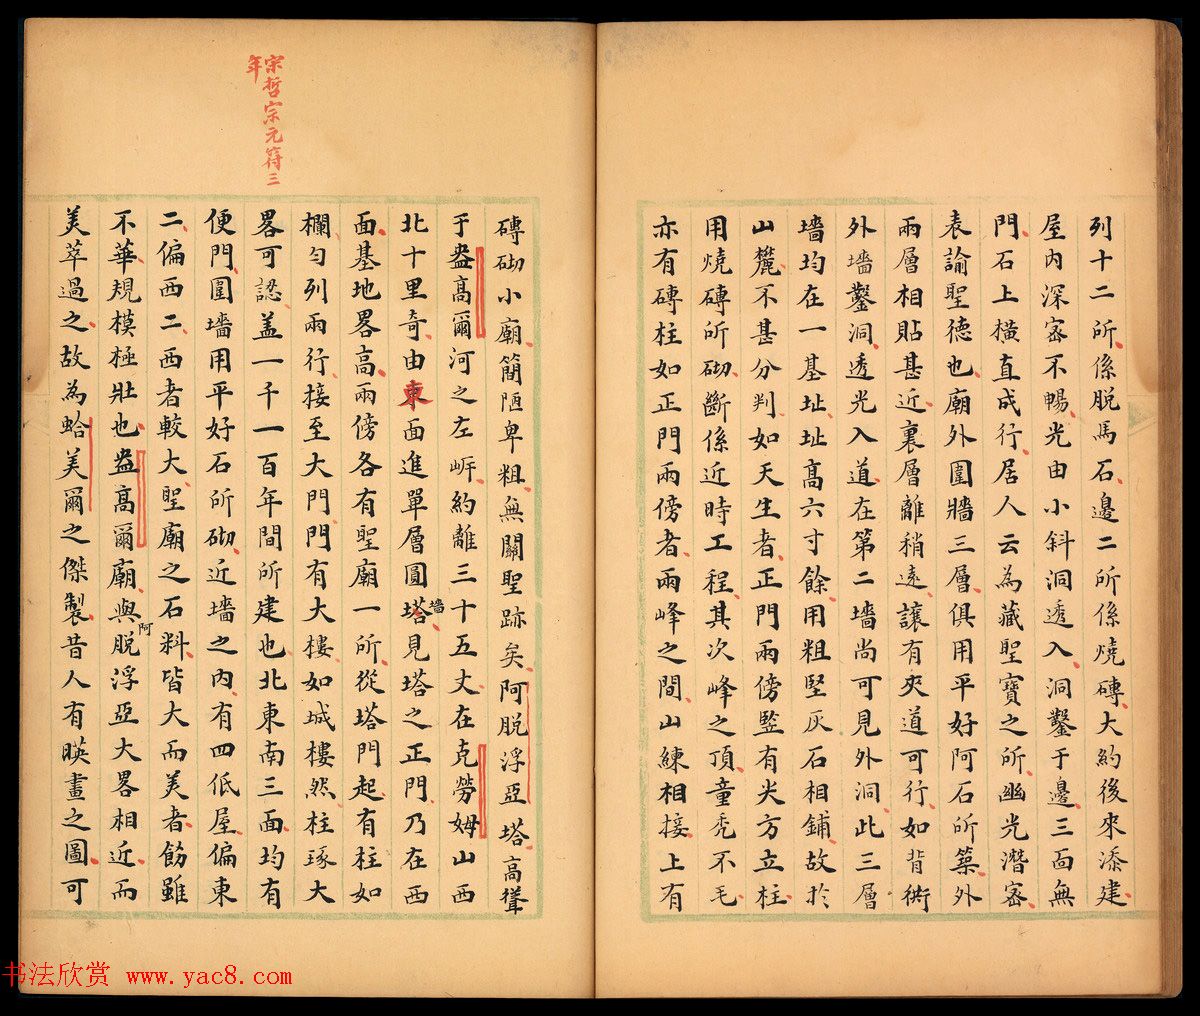 列十二所係脫馬石邊二所係燒磚大約後來添建
屋內深宻不暢光由小斜洞透入洞鑿于邊三面無
門石上橫直成行居人云為藏聖寶之所幽光潛宻
表諭聖德也廟外圍牆三層俱用平好阿石所築外
兩層相貼甚近裏層離稍遠讓有夾道可行如背衖
外墻鑿洞透光入道在第二墻尚可見外洞此三層
墻均在一基址址高六寸餘用粗堅灰石相鋪故於
山麓不甚分判如天生者正門兩傍監有尖方立柱
用燒磚所砌斷係近時工程其次峰之頂童禿不毛
亦有磚柱如正門兩傍者兩峰之間山練相接上有
磚砌小廟簡陋卑粗無關聖跡矣阿脫浮亞塔高聳
于盎高爾河之左岍約離三十五丈在克勞姆山西
北十里奇由東面進單層圓塔見塔之正門乃在西
墻
面基地畧高兩傍各有聖廟一所從塔門起有柱如
欄勻列兩行接至大門門有大樓如城樓然柱琢大
畧可認盖一千一百年間所建也北東南三面均有
宗哲宗元符三
年
便門圍墻用平好石所砌近墻之內有四低屋偏東
二偏西二西者較大聖廟之石料皆大而美者飭雖
不華規模極壯也盎高爾廟與脫浮亞大畧相近而
阿
美萃過之故為蛤美爾之傑製昔人有暎畫之圖可
书法欣赏 www.yac8.com